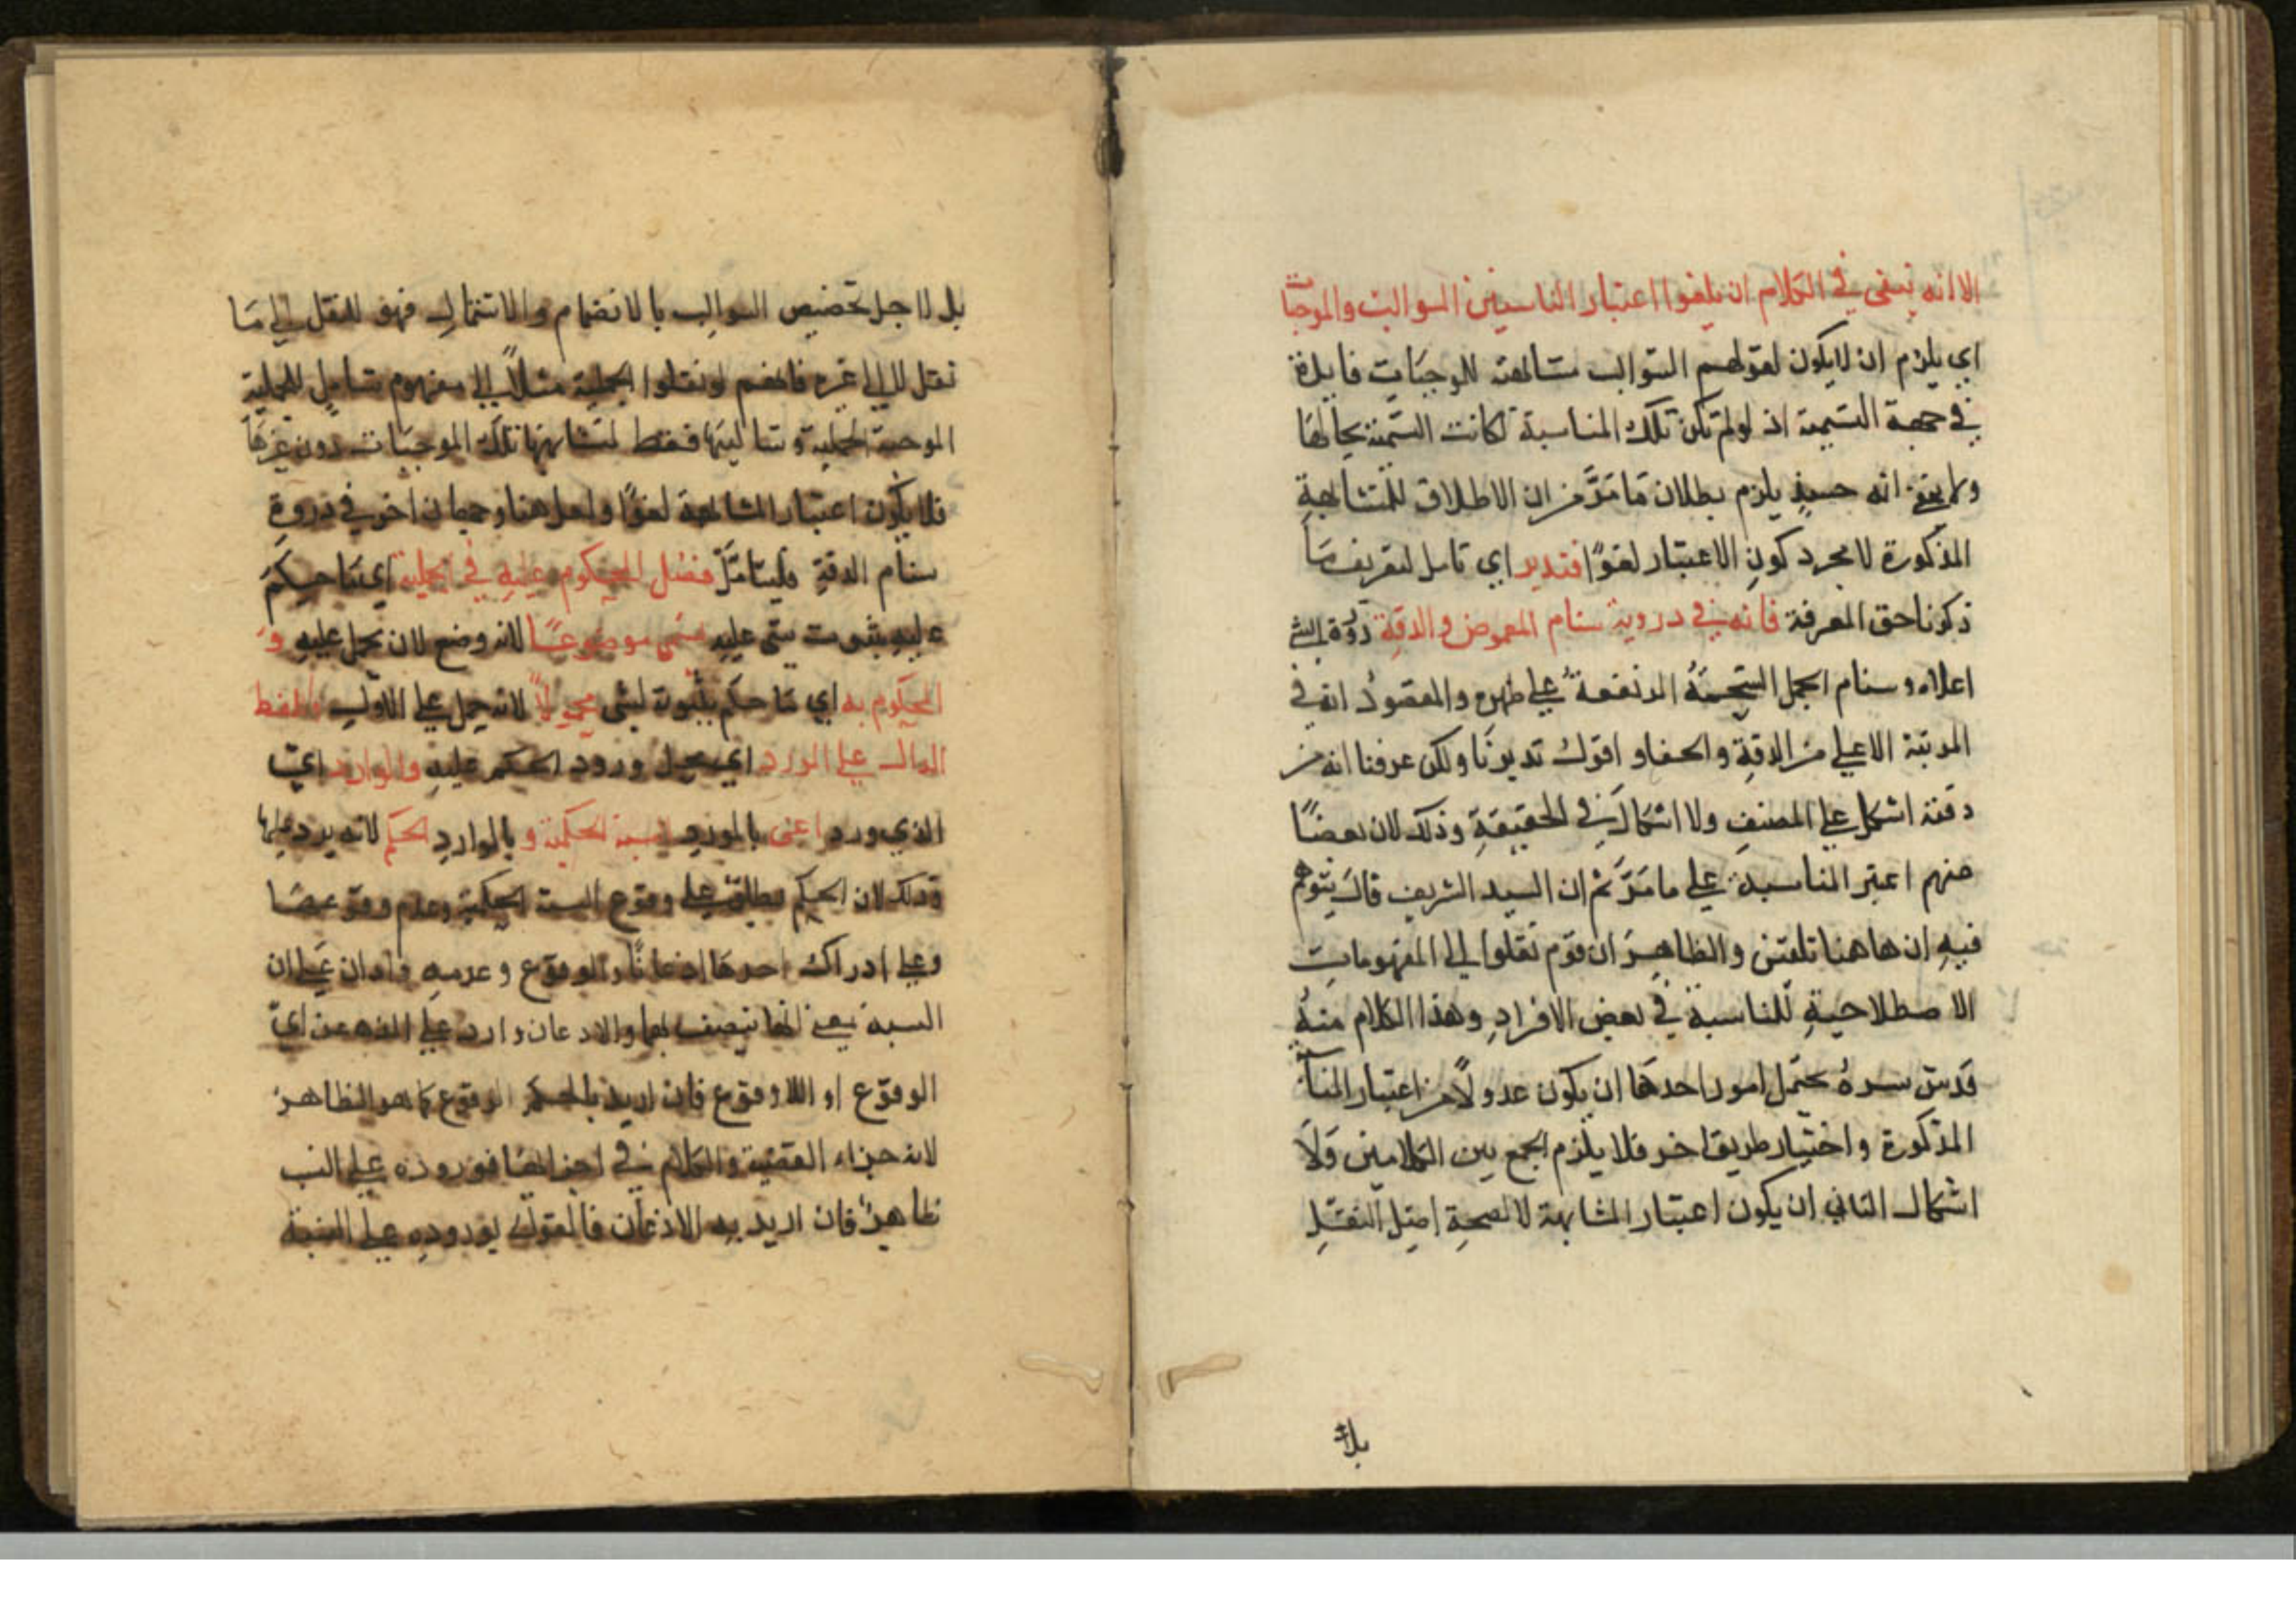 الا انه يبقى في الكلام ان يلغوا اعتبار المناسبة بين السوالب والموجبات
اي يلزم ان لا يكون لقولهم السوالب مشابهة للموجبات فايدة
في جهة التسمية اذ لو لم تكن تلك المناسبة لكانت التسمية بحالها
ولا يخفى انه حينيذ يلزم بطلان ما مَرَّ من ان الاطلاق للمشابهة
المذكورة لا مجرد كون الاعتبار لغوًا فتدبر اي تامل لتعريف مَا
ذكرنا حق المعرفة فانه في دروية سنام الغموض والدقة ذروة الشي
اعلاه وسنام الجمل الشحمةُ المرتفعةُ على ظهره والمقصودُ انه في
المرتبة الاعلى من الدقة والخفا و اقول تدبرنَا ولكن عرفنا انه من
دقته اشكل على المصنف ولا اشكالَ في الحقيقة وذلك لان بعضًا
منهم اعتبر المناسبة على ما مَرَّ ثم ان السيد الشريف قال يتوهم
فيه ان هاهنا نقلين والظاهر ان قوم نقلوا الى المفهومات
الاصطلاحية للمناسبة في بعض الافراد وهذا الكلام منهُ
قدس سره يحتمل امور احدها ان يكون عدولًا من اعتبار المنا
المذكورة واختيار طريق اخر فلا يلزم الجمع بين الكلامين وَلَا
اشكال الثاني ان يكون اعتبار المشابهة لا لصحة اصل النقل
بل
بل لاجل تخصيص السوالب بالانضمام والاشتمال فهو للنقل الى مَا
نقل لا الى غيره فانهم لو نقلوا الحملية مثلًا الى مفهوم شامل للحملية
الموجبة الحملية و سالبتها فقط لمشابهتها تلك الموجبات دون غيرها
فلا يكون اعتبار المشابهة لغوًا ولعل هنا وجهان اخر في ذروة
سنام الدقة فليتامَّل فصل المحكوم عليه في الحملية اي مَا حكم
عليه بثبوت شي عليه يسمى موضوعًا لانه وضع لان يحمل عليه وَ
المحكوم به اي مَا حكم بثبوته لشي محمولًا لانه حمل على الاول واللفظ
الدال على المورد اي محل ورود الحكم عليه والوارد اي
الذي ورد اعنى بالمورد النسبة الحكمية و بالوارد الحكم لانه يرد عليها
وذلك لان الحكم يطلق على وقوع النسبة الحكمية وعدم وقوعها
وعلى ادراك احدها اذعانًا والوقوع وعدمه واردان على ان
النسبة يعني انها يتصف بهما والاذعان وارد على الذهن اي
الوقوع او اللاوقوع فان اريد بالحكم الوقوع كما هو الظاهر
لانه جزاء القضية والكلام في اجزائها فوروده على النسب
ظاهرٌ فان اريد به الاذعان فالقول بوروده على النسبة